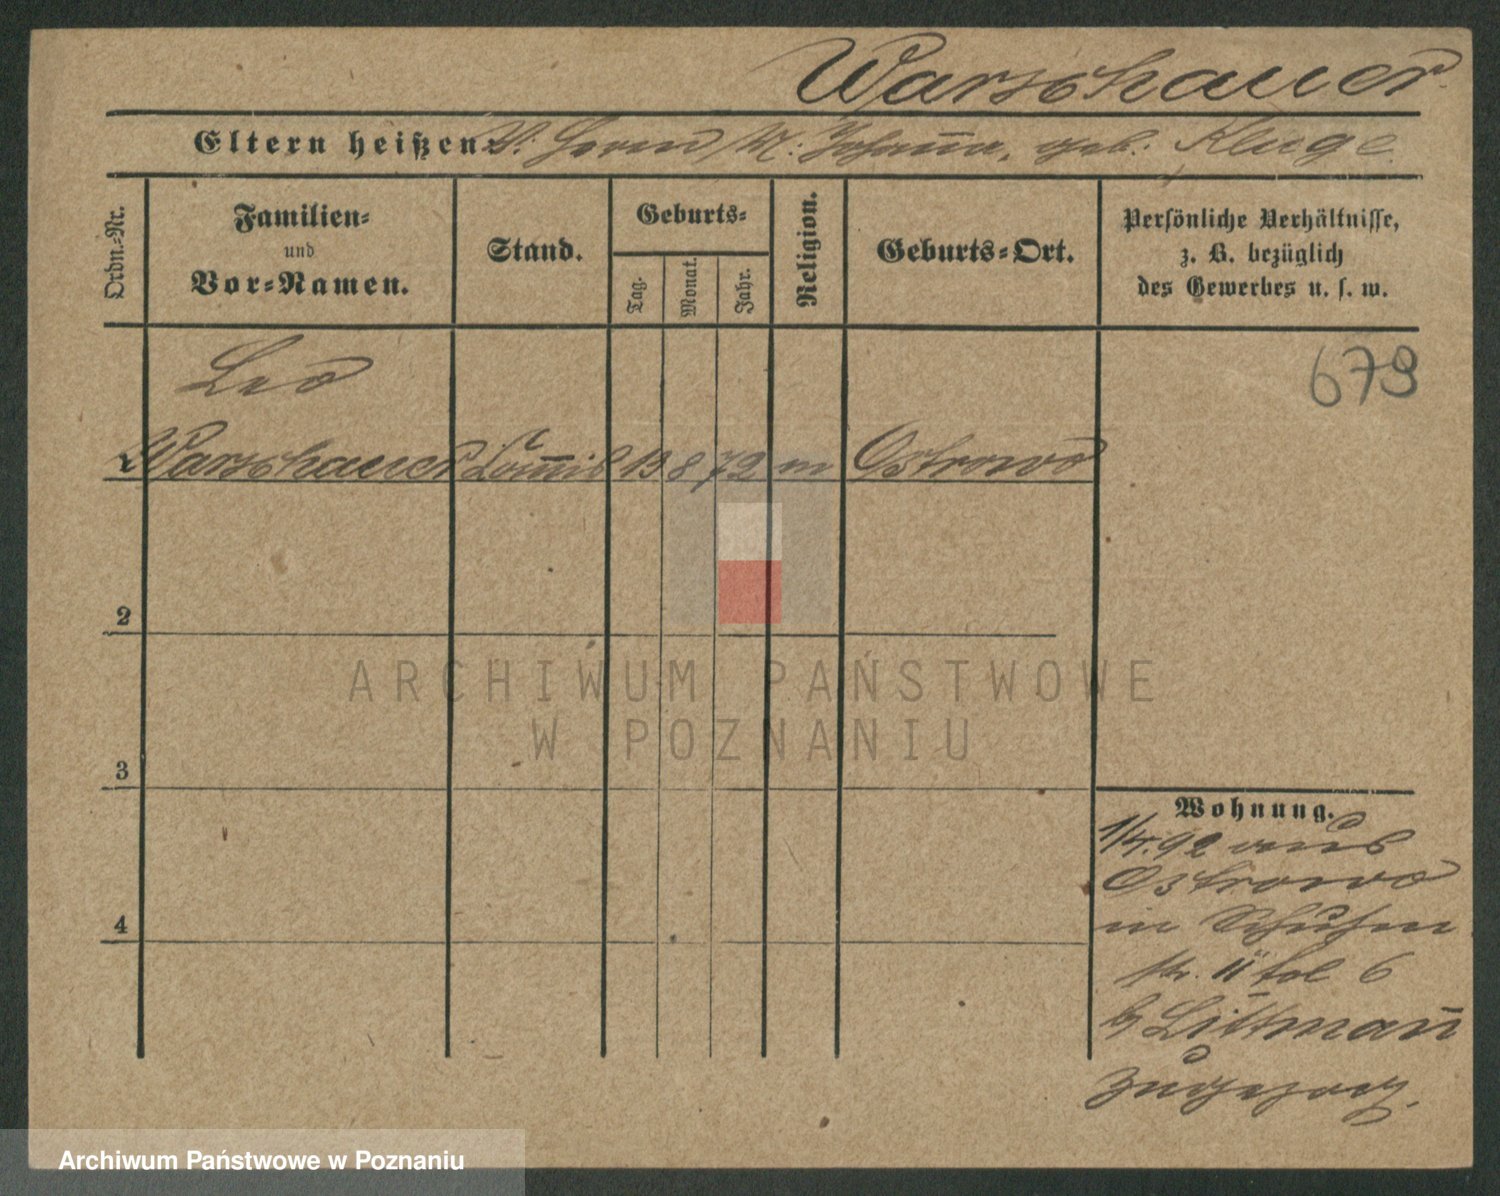 Warschauer
Eltern heißen V. Herm M: Johan̄a, geb. Kluge
Ordn.=Nr.
Familien=
und
Vor=Namen.
Stand.
Geburts=
Tag.
Monat.
Jahr.
Religion.
Geburts=Ort.
Persönliche Verhältnisse,
z. B. bezüglich
des Gewerbes u. s. w.
679
Leo
1 Warschauer Com̄is 19 8 72 m Ostrowo
2
3
4
Wohnung.
1/4.92 aus
Ostrowo
in Schuhm
str. 11 fol 6
b Littman̄
zugezog.
ARCHIWUM PAŃSTWOWE
W POZNANIU
Archiwum Państwowe w Poznaniu